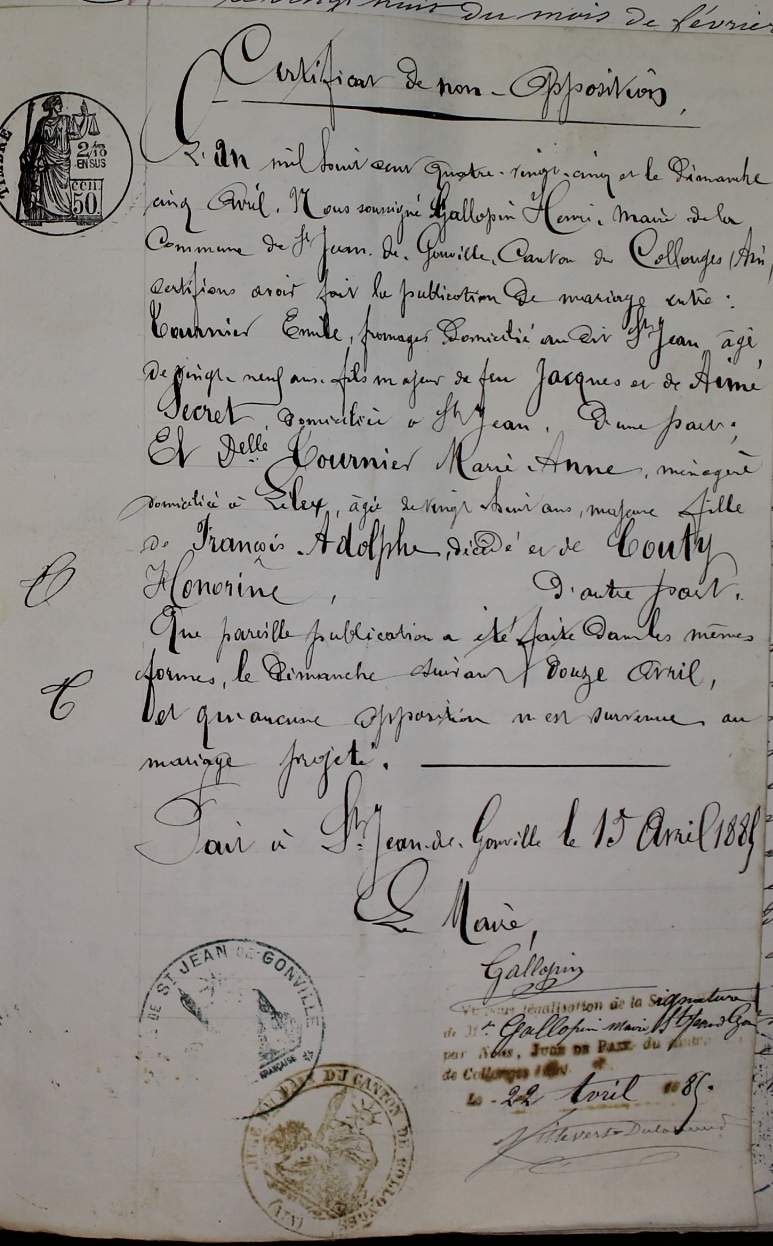 du mois de février
Certificat de non-Opposition
TIMBRE
2/10
EN SUS
50 CEN
L'an mil huit cent quatre-vingt-cinq et le Dimanche
cinq Avril. Nous soussigné Gallopin Henri, Maire de la
Commune de St Jean-de-Gonville, Canton de Collonges (Ain)
certifions avoir fait la publication de mariage entre :
Tournier Emile, fromager domicilié au dit St Jean, âgé
de vingt-neuf ans, fils majeur de feu Jacques et de Aimé
Secret, domiciliée à St Jean, D'une part ;
Et Delle Tournier Marie Anne, ménagère
domiciliée à Lélex, âgée de vingt huit ans, majeure fille
de François Adolphe, décédé et de Couty
Honorine, D'autre part.
Que pareille publication a été faite dans les mêmes
formes, le Dimanche suivant douze Avril,
et qu'aucune opposition n'est survenue au
mariage projeté.
Fait à St Jean-de-Gonville le 15 Avril 1885
Le Maire,
Gallopin
DE ST JEAN-DE-GONVILLE
FRANÇAISE
légalisation de la Signature
de Mr Gallopin maire St Jean Gon
par Nous, Juge de Paix du
de Collonges
Le 22 Avril 1885.
DU CANTON DE COLLONGES
(AIN)